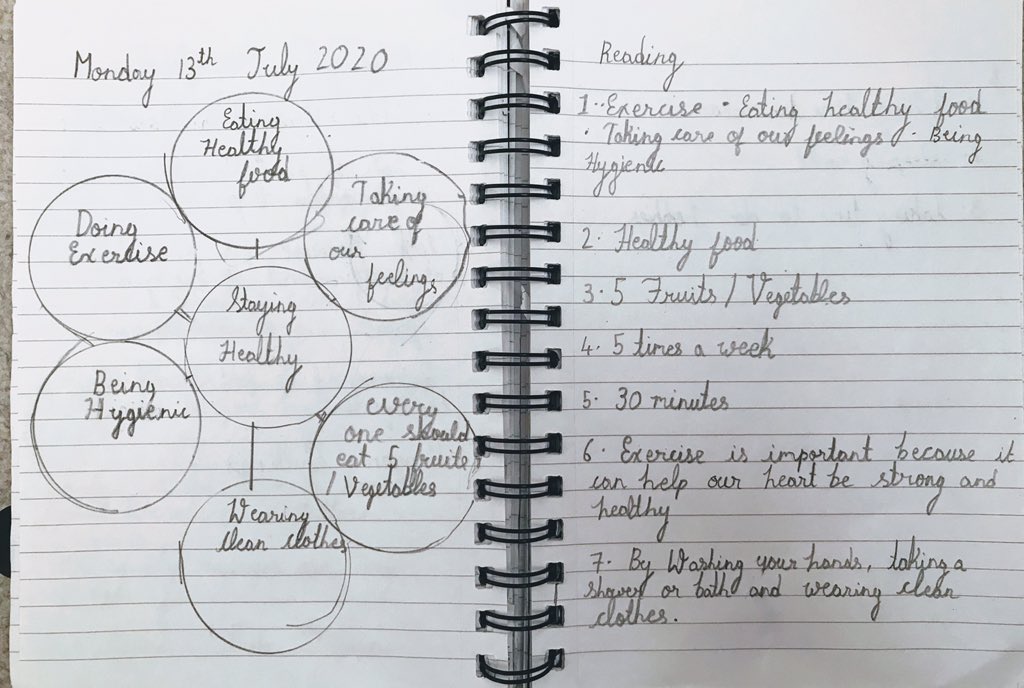 Monday 13th July 2020
Eating
Healthy
food
Taking
care of
our
feelings
Doing
Exercise
Staying
Healthy
Being
Hygienic
every
one should
eat 5 fruits
/ Vegetables
Wearing
clean clothes
Reading
1. · Exercise · Eating healthy food
· Taking care of our feelings · Being
Hygienic
2. Healthy food
3. 5 Fruits / Vegetables
4. 5 times a week
5. 30 minutes
6. Exercise is important because it
can help our heart be strong and
healthy
7. By Washing your hands, taking a
shower or bath and wearing clean
clothes.